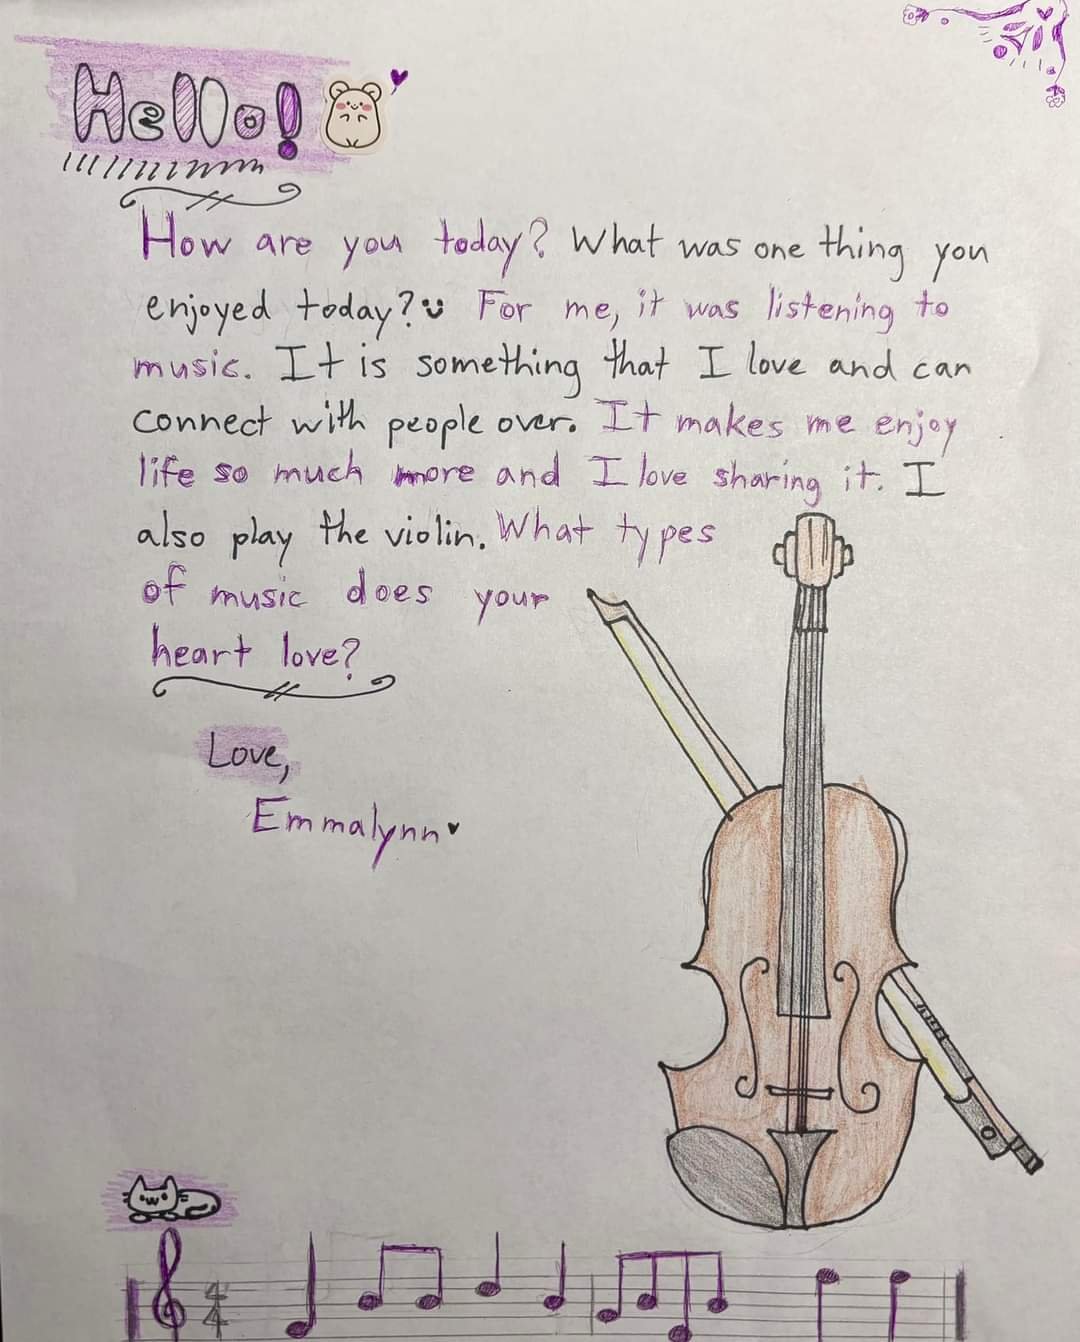 Hello!
How are you today? What was one thing you
enjoyed today? For me, it was listening to
music. It is something that I love and can
connect with people over. It makes me enjoy
life so much more and I love sharing it. I
also play the violin. What types
of music does your
heart love?
Love,
Emmalynn
4
4